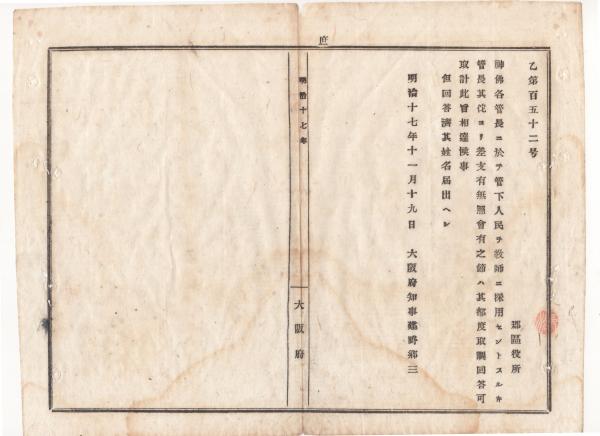 乙第百五十二号
郡區役所
神佛各管長ニ於テ管下人民ヲ教師ニ採用セントスルキ
管長其他ヨリ差支有無照會有之節ハ其都度取調回答可
取計此旨相達候事
但回答濟其姓名届出ヘシ
明治十七年十一月十九日　大阪府知事建野郷三
庶
明治十七年
大阪府